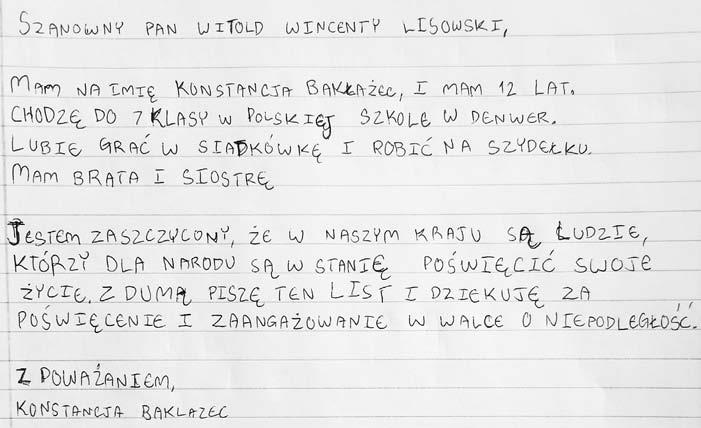 SZANOWNY PAN WITOLD WINCENTY LISOWSKI,
MAM NA IMIĘ KONSTANCJA BAKŁAŻEC, I MAM 12 LAT.
CHODZĘ DO 7 KLASY W POLSKIEJ SZKOLE W DENWER.
LUBIE GRAĆ W SIADKÓWKĘ I ROBIĆ NA SZYDEŁKU.
MAM BRATA I SIOSTRĘ
JESTEM ZASZCZYCONY, ŻE W NASZYM KRAJU SĄ ŁUDZIE,
KTÓRZY DLA NARODU SĄ W STANIĘ POŚWIĘCIĆ SWOJE
ŻYCIE. Z DUMĄ PISZĘ TEN LIST I DZIEKUJĘ ZA
POŚWIĘCENIE I ZAANGAŻOWANIE W WALCE O NIEPODLEGŁOŚĆ.
Z POWAŻANIEM,
KONSTANCJA BAKLAZEC